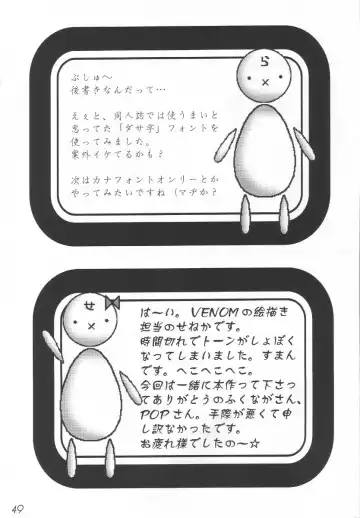 ぶしゅ〜
後書きなんだって…
えぇと、同人誌では使うまいと
思ってた「ダサ字」フォントを
使ってみました。
案外イケてるかも？
次はカナフォントオンリーとか
やってみたいですね（マヂか？
ら
せ
は〜い。VENOMの絵描き
担当のせねかです。
時間切れでトーンがしょぼく
なってしまいました。すまん
です。へこへこへこ。
今回は一緒に本作って下さっ
てありがとうのふくながさん、
POPさん。手際が悪くて申
し訳なかったです。
お疲れ様でしたの〜☆
49